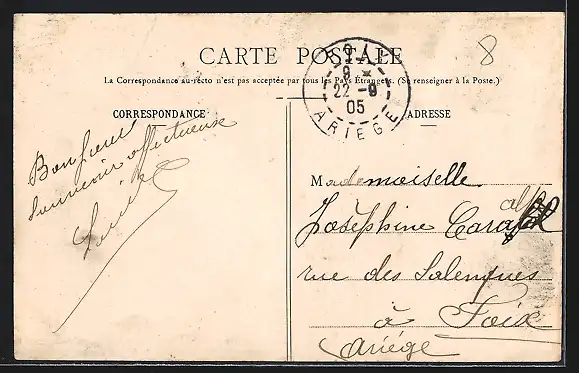 8
CARTE POSTALE
La Correspondance au recto n'est pas acceptée par tous les Pays Étrangers. (Se renseigner à la Poste.)
9 *
22 - 9
05
ARIEGE
CORRESPONDANCE
ADRESSE
Bonjour
souvenir affectueuse
Mademoiselle
Joséphine
rue des Salenques
à Foix
Ariège